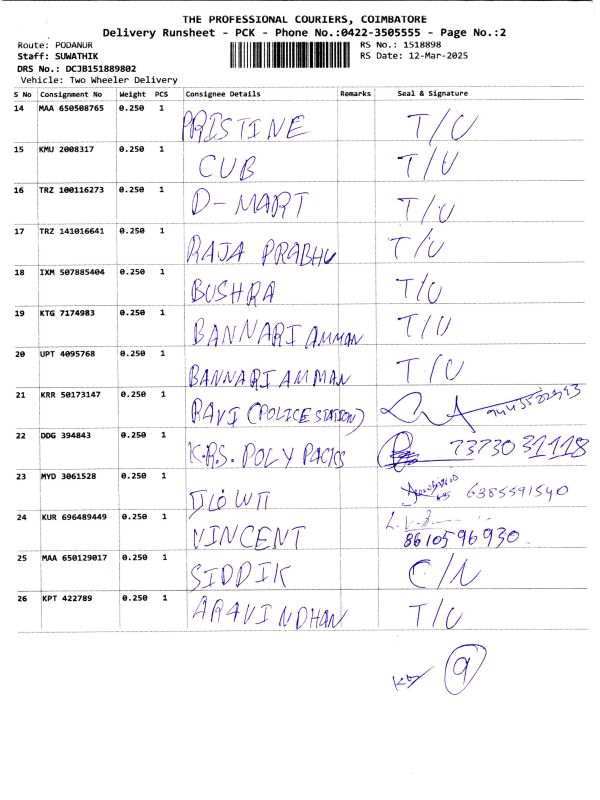 THE PROFESSIONAL COURIERS, COIMBATORE
Delivery Runsheet - PCK - Phone No.:0422-3505555 - Page No.:2
Route: PODANUR RS No.: 1518898
Staff: SUWATHIK RS Date: 12-Mar-2025
DRS No.: DCJB151889802
Vehicle: Two Wheeler Delivery
S No Consignment No Weight PCS Consignee Details Remarks Seal & Signature
14 MAA 650508765 0.250 1 PRISTINE T/U
15 KMU 2008317 0.250 1 CUB T/U
16 TRZ 100116273 0.250 1 D-MART T/U
17 TRZ 141016641 0.250 1 RAJA PRABHU T/U
18 IXM 507885404 0.250 1 BUSHRA T/U
19 KTG 7174983 0.250 1 BANNARI AMMAN T/U
20 UPT 4095768 0.250 1 BANNARI AMMAN T/U
21 KRR 50173147 0.250 1 RAVI (POLICE STATION)
22 DDG 394843 0.250 1 K.R.S. POLY PACKS 7373031118
23 MYD 3061528 0.250 1 6385591540
24 KUR 696489449 0.250 1 VINCENT 8610596930
25 MAA 650129017 0.250 1 SIDDIK C/N
26 KPT 422789 0.250 1 ARAVINDHAN T/U
9